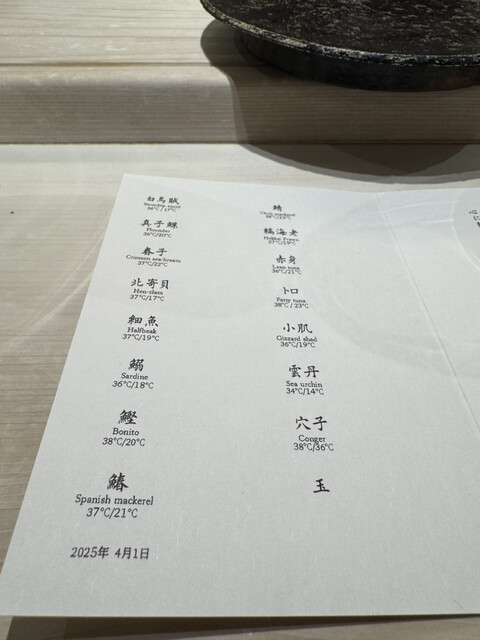 白烏賊
36°C/17°C
真子鰈
Flounder
36°C/20°C
春子
Crimson sea-bream
37°C/22°C
北寄貝
Hen-clam
37°C/17°C
細魚
Halfbeak
37°C/19°C
鰯
Sardine
36°C/18°C
鰹
Bonito
38°C/20°C
鰆
Spanish mackerel
37°C/21°C
2025年 4月1日
鯖
縞海老
Hokkai Prawn
37°C/19°C
赤身
Lean tuna
36°C/21°C
トロ
Fatty tuna
38°C / 23°C
小肌
Gizzard shad
36°C/19°C
雲丹
Sea urchin
34°C/14°C
穴子
Conger
38°C/36°C
玉